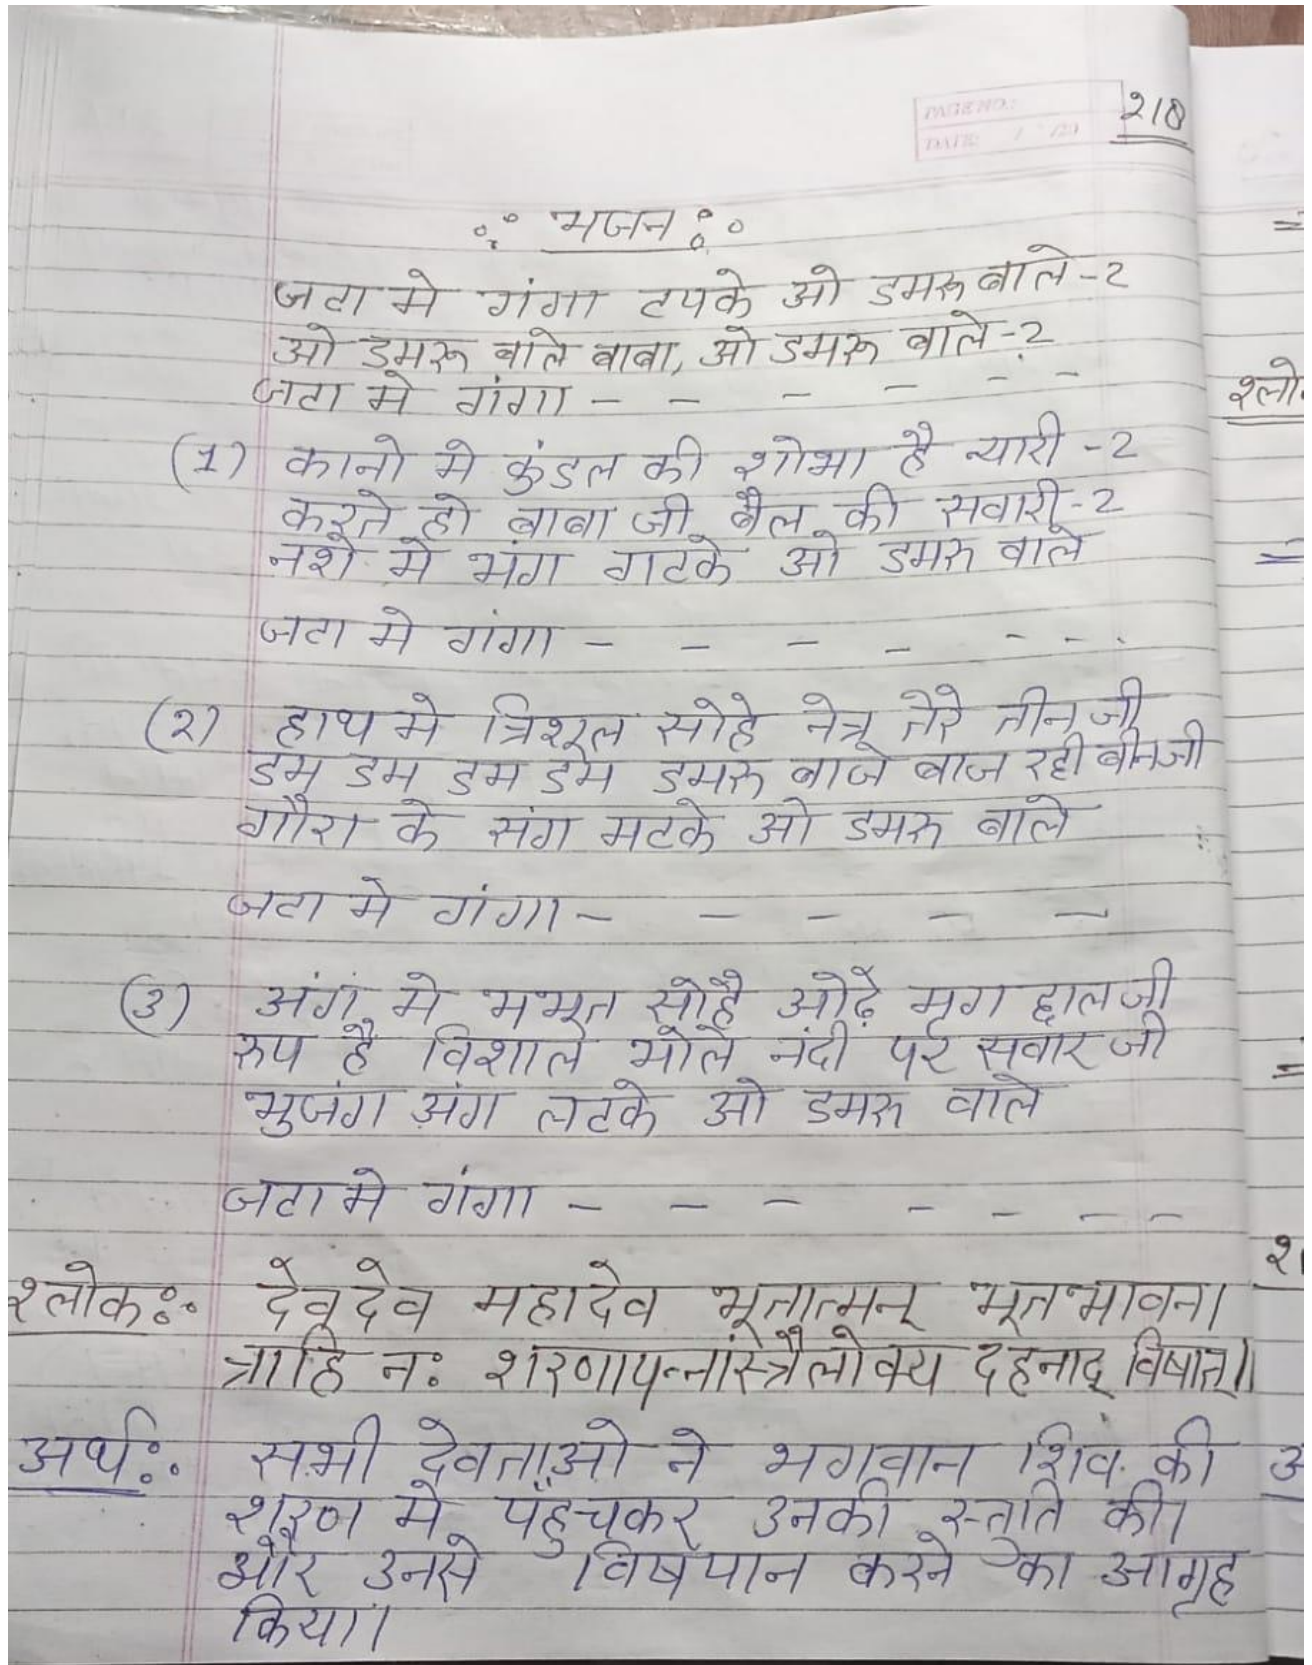 PAGE NO.:
DATE: / /20
२१०
ः भजन ः
जटा मे गंगा टपके ओ डमरू वाले -2
ओ डमरू वाले बाबा, ओ डमरू वाले -2
जटा मे गंगा - - - - - -
(1) कानो मे कुंडल की शोभा है न्यारी -2
करते हो बाबा जी बैल की सवारी -2
नशे मे भंग गटके ओ डमरू वाले
जटा मे गंगा - - - - - - -
(२) हाथ मे त्रिशूल सोहे नेत्र तेरे तीन जी
डम डम डम डम डमरू बाजे बाज रही बीन जी
गौरा के संग मटके ओ डमरू वाले
जटा मे गंगा - - - - -
(3) अंग मे भभूत सोहै ओढ़े मृग छाल जी
रूप है विशाल भोले नंदी पर सवार जी
भुजंग अंग लटके ओ डमरू वाले
जटा मे गंगा - - - - - - -
श्लोकः देवदेव महादेव भूतात्मन् भूतभावन।
त्राहि नः शरणापन्नांस्त्रैलोक्य दहनाद् विषात्।।
अर्थः सभी देवताओ ने भगवान शिव की
शरण मे पहुँचकर उनकी स्तुति की।
और उनसे विषपान करने का आग्रह
किया।